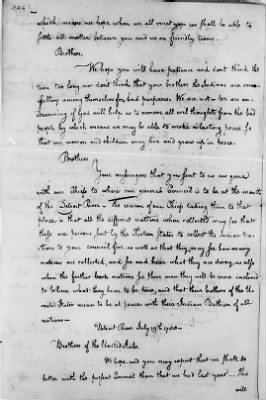 which means we hope when we all meet you we shall be able to
settle all matters between you and us on friendly terms.
Brothers,
We hope you will have patience and dont think the
time too long nor dont think that your brothers the Indians are con-
sulting among themselves for bad purposes. We are not — we are in
of God will help us to remove all evil thoughts from the bad
people by which means we may be able to make a lasting peace so
that our women and children may live and grow up in peace.
Brothers
Your messengers that you sent to us are gone
with our Chiefs to where our general Council is to be at the mouth
of the Detroit River — The reason of our Chiefs taking them to that
place is that all the different nations when collected may see that
these are become sent by the Thirteen States to collect the Indian Na-
tions to your council fire as well as that they may see how many
nations are collected, and see and hear what they are doing, as also
when the farther back nations see these men they will be more inclined
to believe what they hear to be true, and that their brothers of the U-
nited States mean to be at peace with their Indian Brethren of all
nations —
Detroit River July 19th 1788 —
Brothers of the United States.
We hope and you may expect that we shall do
better with the present Council than that we had last year — This
will